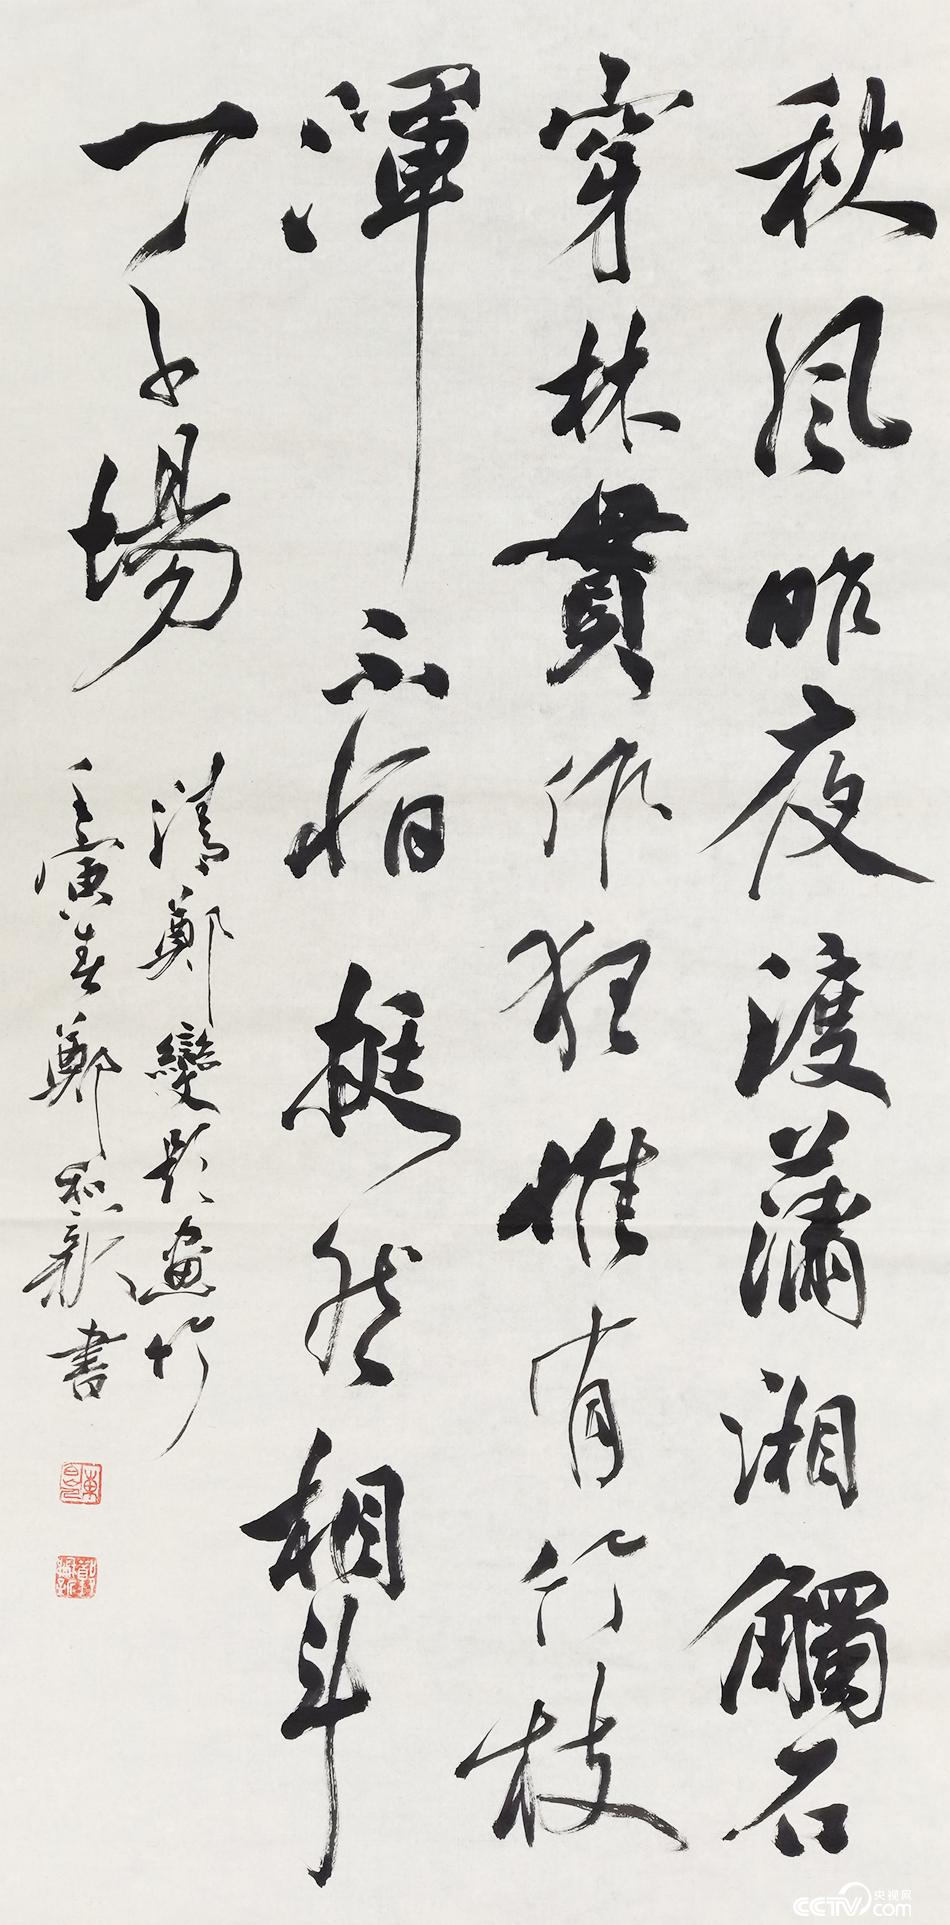 秋風昨夜渡瀟湘觸石
穿林貫作狂惟有竹枝
渾不怕挺然相斗
一千場
清鄭燮題畫竹
壬寅春鄭和新書
央视网
CCTV.com